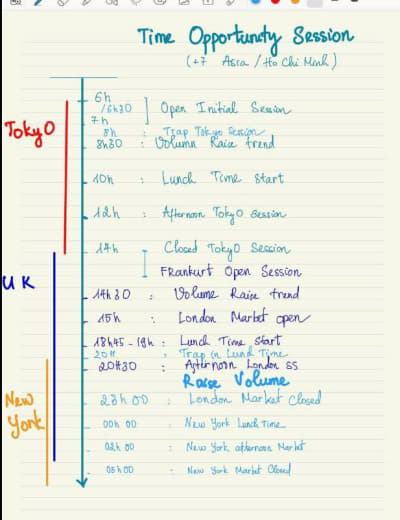 Time Opportunity Session
(+7 Asia / Ho Chi Minh)
6h
/6h30
7h
] Open Initial Session
8h : Trap Tokyo Session
8h30 : Volumn Raise trend
TOkyO
10h : Lunch Time start
12h : Afternoon TokyO session
14h Closed TokyO Session
FRankurt Open Session
UK
14h30 : Volume Raise trend
15h : London Market open
18h45 - 19h : Lunch Time start
20h : Trap in Lund Time
20h30 : Afternoon London ss
Raise Volume
New York
23h00 : London Market Closed
00h 00 : New York Lunch Time
02h 00 : New York afternoon Market
05h00 : New York Market Closed